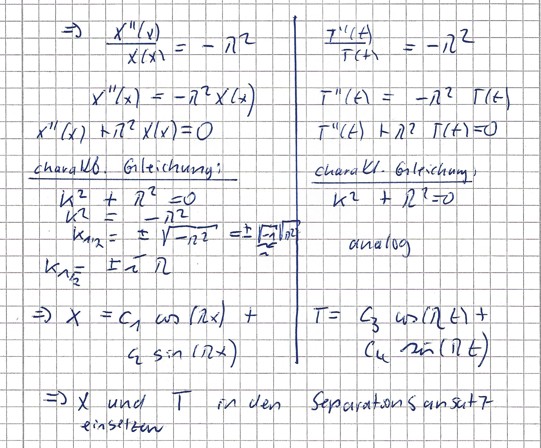 ⇒ X''(x)/X(x) = -λ²
X''(x) = -λ² X(x)
X''(x) + λ² X(x) = 0
charakt. Gleichung:
k² + λ² = 0
k² = -λ²
k1/2 = ± √-λ² = ± √-1 √λ²
i
k1/2 = ± i λ
⇒ X = C1 cos(λx) +
C2 sin(λx)
T''(t)/T(t) = -λ²
T''(t) = -λ² T(t)
T''(t) + λ² T(t) = 0
charakt. Gleichung:
k² + λ² = 0
analog
T = C3 cos(λt) +
C4 sin(λt)
⇒ X und T in den Separationsansatz
einsetzen